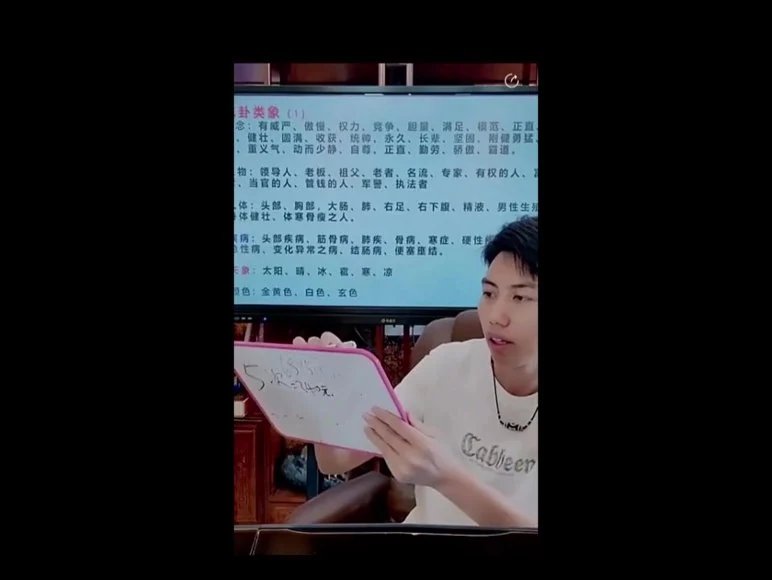 卦类象（1）
念：有威严、傲慢、权力、竞争、胆量、满足、模范、正直、
、健壮、圆满、收获、统帅、永久、长辈、坚固、刚健勇猛、
、重义气、动而少静、自尊、正直、勤劳、骄傲、霸道。
物：领导人、老板、祖父、老者、名流、专家、有权的人、富
、当官的人、管钱的人、军警、执法者
人体：头部、胸部，大肠、肺、右足、右下腹、精液、男性生殖
身体健壮、体寒骨瘦之人。
疾病：头部疾病、筋骨病、肺疾、骨病、寒症、硬性
性病、变化异常之病、结肠病、便塞壅结。
天象：太阳、晴、冰、雹、寒、凉
颜色：金黄色、白色、玄色
5次
元.
Cabbeen